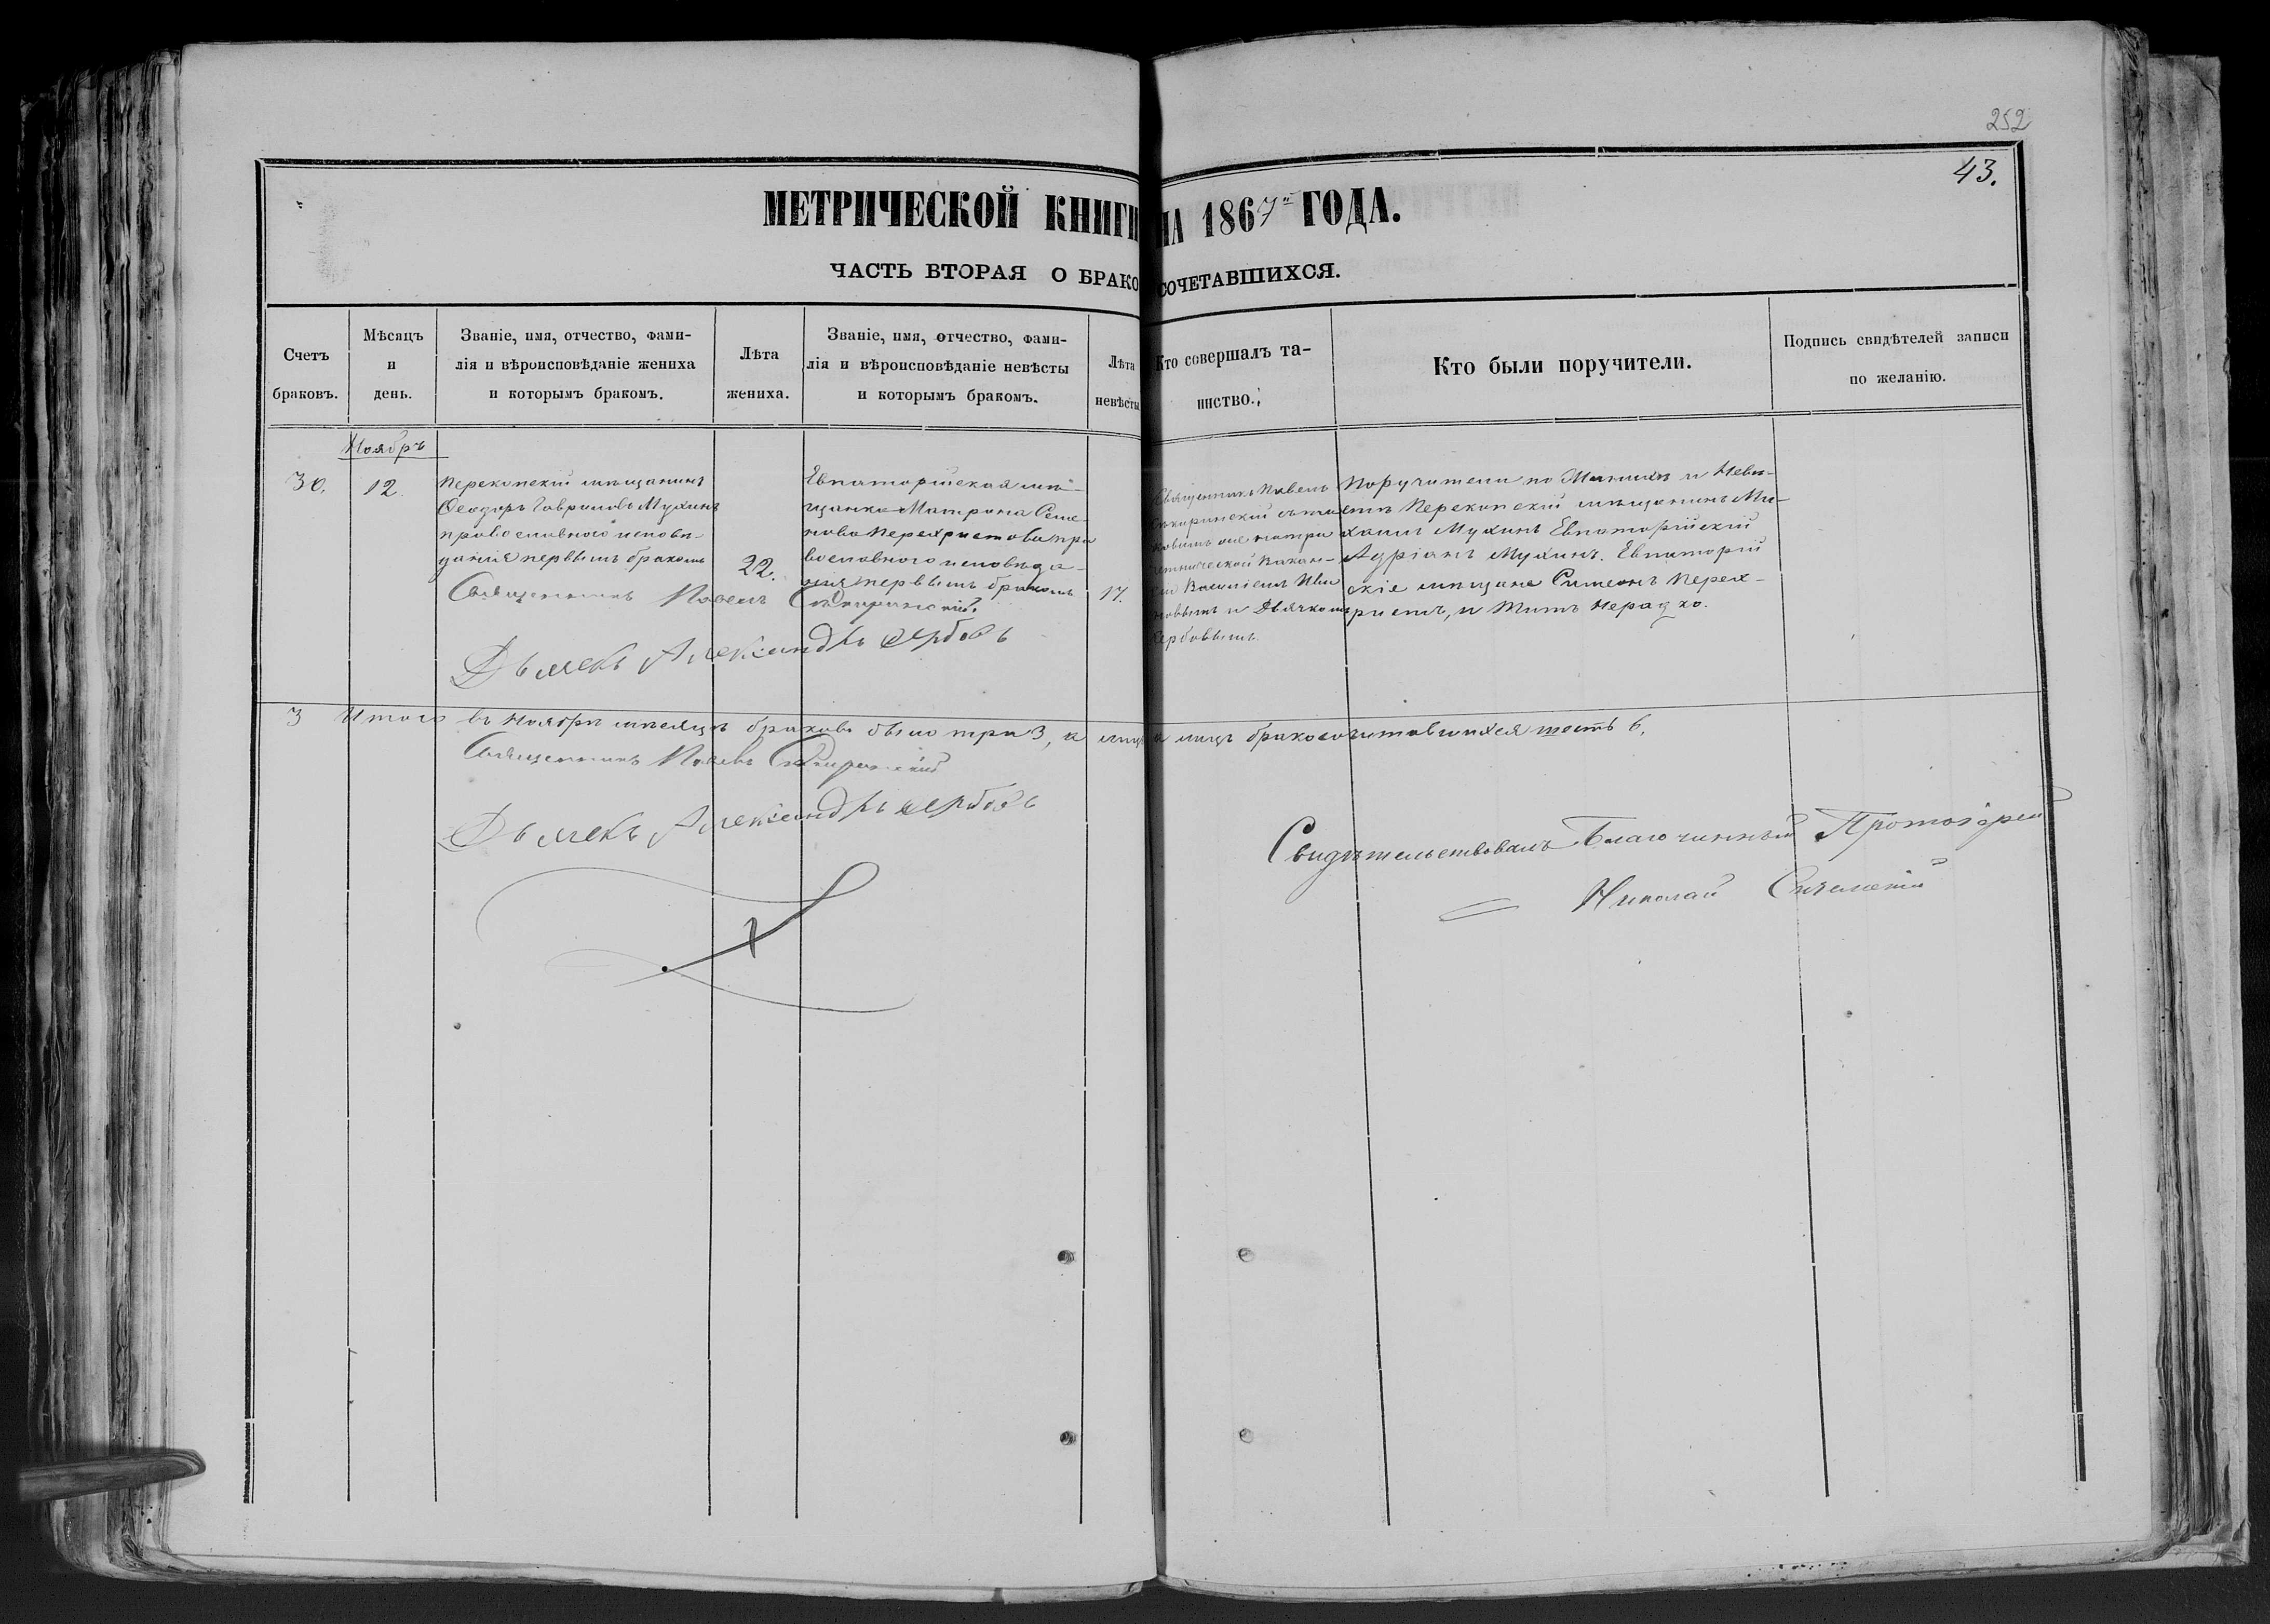 252
43.
МЕТРИЧЕСКОЙ КНИГИ НА 1867 ГОДА.
ЧАСТЬ ВТОРАЯ О БРАКОСОЧЕТАВШИХСЯ.
Счетъ браковъ.
Мѣсяцъ и день.
Званіе, имя, отчество, фами-
лія и вѣроисповѣданіе жениха
и которымъ бракомъ.
Лѣта жениха.
Званіе, имя, отчество, фами-
лія и вѣроисповѣданіе невѣсты
и которымъ бракомъ.
Лѣта невѣсты
Кто совершалъ та-
инство.
Кто были поручители.
Подпись свидѣтелей записи
по желанію.
Ноябрь
30.
12.
Перекопскій мѣщанинъ
Ѳеодоръ Гавриловъ Мухинъ
православнаго исповѣ-
данія первымъ бракомъ
22.
Евпаторійская мѣ-
щанка Матрона Семе-
нова Перехристова пра
вославнаго исповѣда-
нія первымъ бракомъ
17.
Священникъ Павелъ
Василіемъ Ива
новымъ и Дьячкомъ
Сербовымъ.
Поручители по Женихѣ и Невѣ-
стѣ Перекопскій мѣщанинъ Ми-
хаилъ Мухинъ Евпаторійскій
Адріанъ Мухинъ. Евпаторій
скіе мѣщане Симеонъ Перех-
ристъ, и Титъ Нерадко.
Священникъ Павелъ
Дьячекъ Александръ Сербовъ
3 Итого въ Ноябрѣ мѣсяцѣ браковъ было три 3, а лицъ бракосочетавшихся шесть 6.
Священникъ Павелъ
Дьячекъ Александръ Сербовъ
Свидѣтельствовалъ Благочинный Протоіерей
Николай